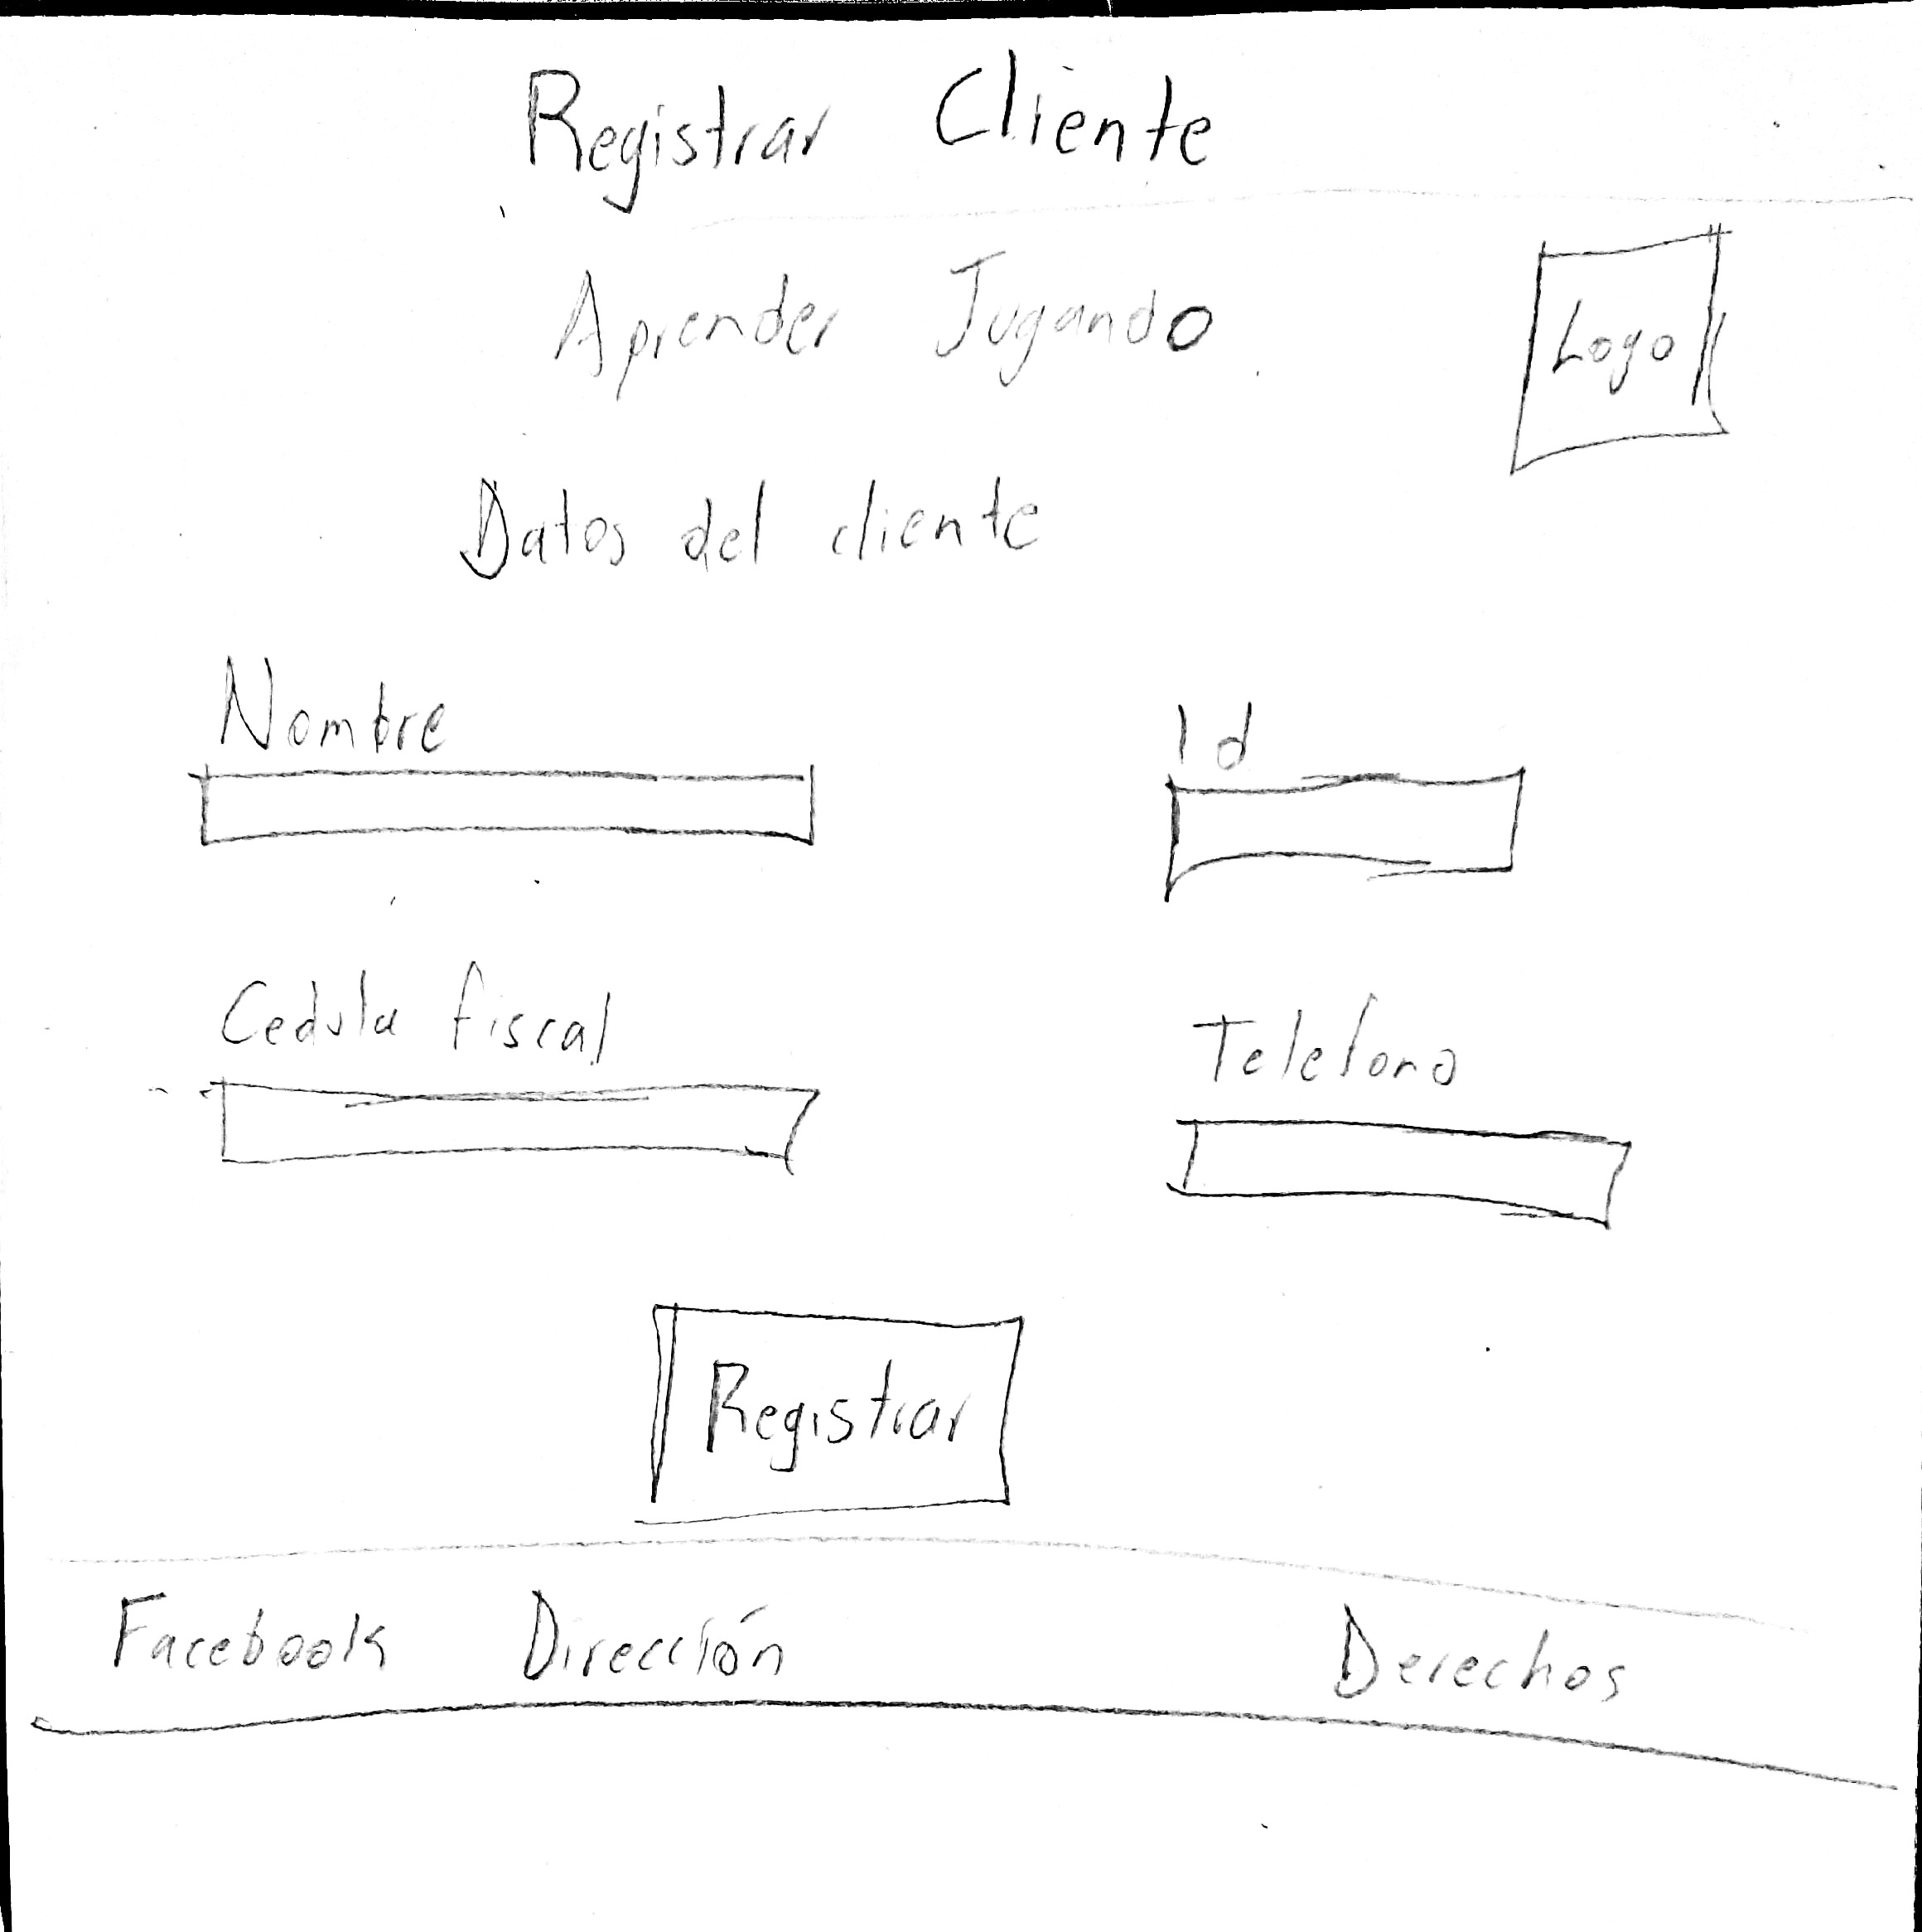 Registrar Cliente
Aprender Jugando
Logo
Datos del cliente
Nombre
Id
Cedula fiscal
Telefono
Registrar
Facebook Dirección Derechos